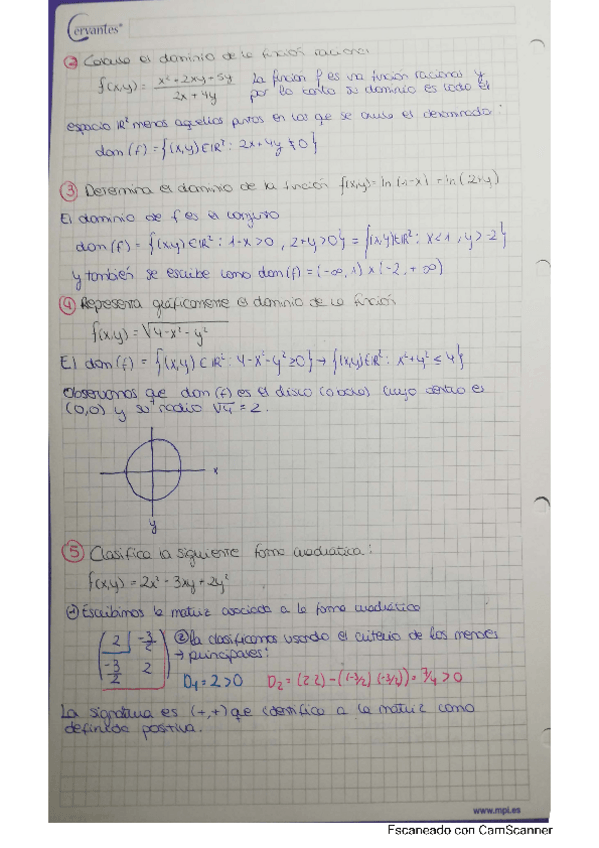 Cervantes
② Calcula el dominio de la función racional
f(x,y) = x² - 2xy + 5y / 2x + 4y La función f es una función racional y
por lo tanto su dominio es todo el
espacio ℝ² menos aquellos puntos en los que se anula el denominador:
dom (f) = {(x,y) ∈ ℝ² : 2x + 4y ≠ 0}
③ Determina el dominio de la función f(x,y) = ln (1-x) + ln (2+y)
El dominio de f es el conjunto
dom (f) = {(x,y) ∈ ℝ² : 1-x > 0 , 2+y > 0} = {(x,y) ∈ ℝ² : x < 1 , y > -2}
y también se escribe como dom (f) = (-∞, 1) x (-2, +∞)
④ Representa gráficamente el dominio de la función
f(x,y) = √4-x²-y²
El dom (f) = {(x,y) ∈ ℝ² : 4-x²-y² ≥ 0} → {(x,y) ∈ ℝ² : x²+y² ≤ 4}
Observamos que dom (f) es el disco cuyo centro es
(0,0) y su radio √4 = 2.
x
y
⑤ Clasifica la siguiente forma cuadrática:
f(x,y) = 2x² - 3xy + 2y²
① Escribimos la matriz asociada a la forma cuadrática
2 -3/2 ② La clasificamos usando el criterio de los menores
-3/2 2 → principales:
D₁ = 2 > 0 D₂ = (2·2) - ((-3/2)·(-3/2)) = 7/4 > 0
La signatura es (+,+) que identifica a la matriz como
definida positiva.
www.mpl.es
Escaneado con CamScanner